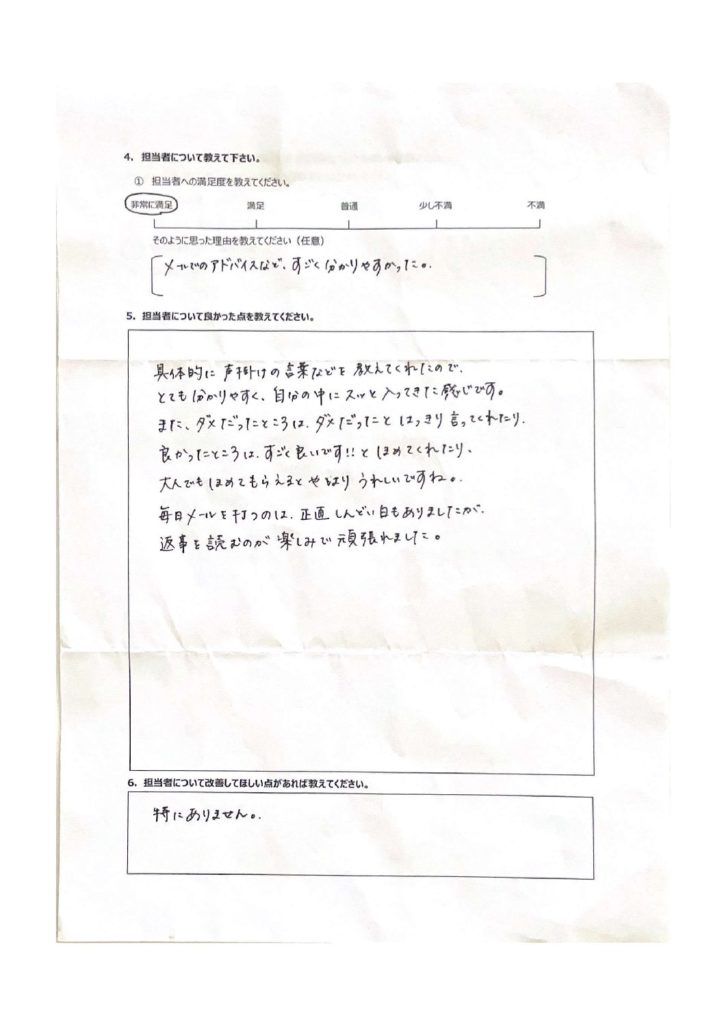 4. 担当者について教えて下さい。
① 担当者への満足度を教えてください。
非常に満足 満足 普通 少し不満 不満
そのように思った理由を教えてください（任意）
メールでのアドバイスなど、すごく分かりやすかった。
5. 担当者について良かった点を教えてください。
具体的に声掛けの言葉などを教えてくれたので、
とても分かりやすく、自分の中にスッと入ってきた感じです。
また、ダメだったところは、ダメだったとはっきり言ってくれたり、
良かったところは、すごく良いです!!とほめてくれたり、
大人でもほめてもらえるとやはりうれしいですね。
毎日メールを打つのは、正直しんどい日もありましたが、
返事を読むのが楽しみで頑張れました。
6. 担当者について改善してほしい点があれば教えてください。
特にありません。